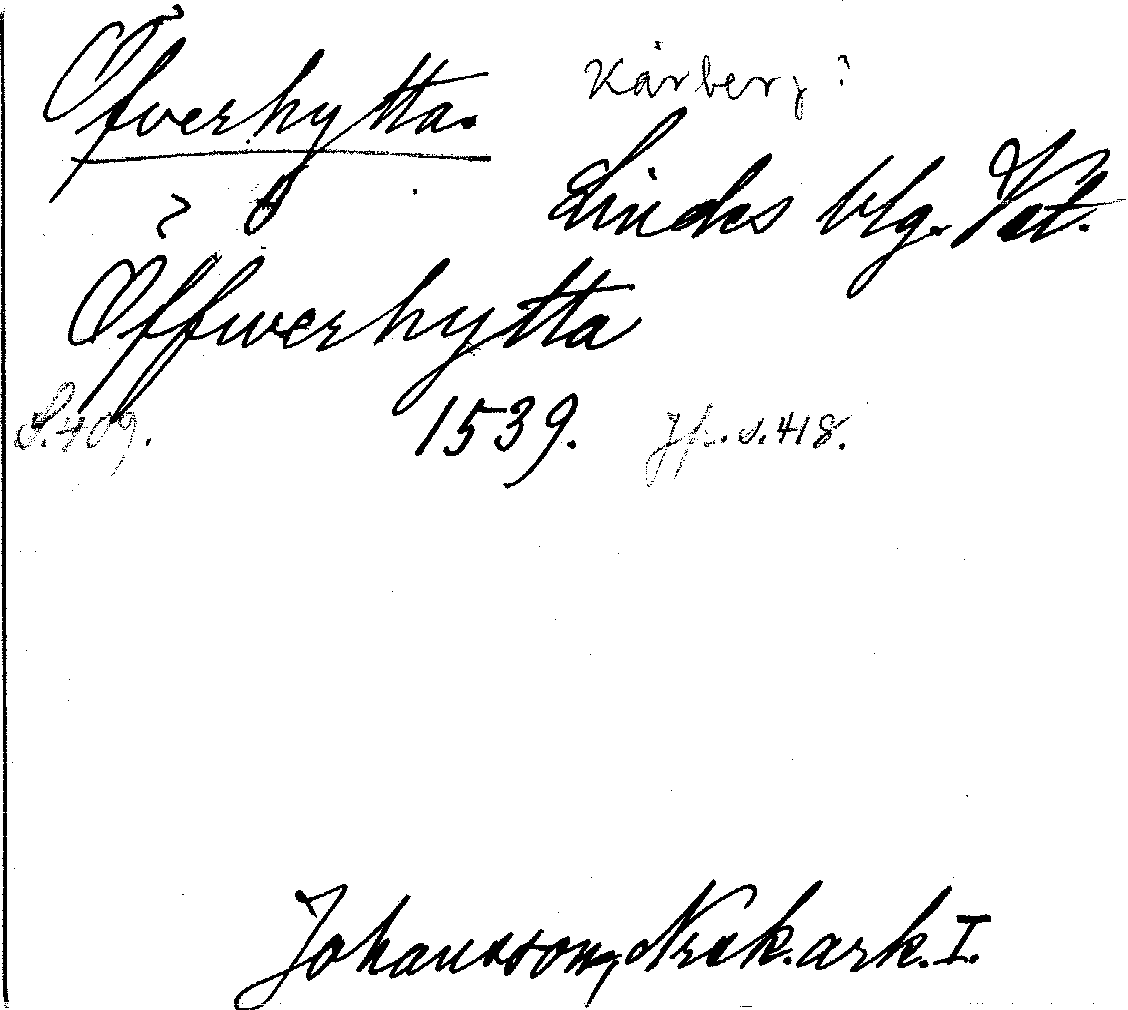 Öfverhytta. Kårberg?
? Lindes blg. Vst.
Öffwerhytta
S. 409. 1539. Jfr. s. 418.
Johansson, Norask. ark. I.